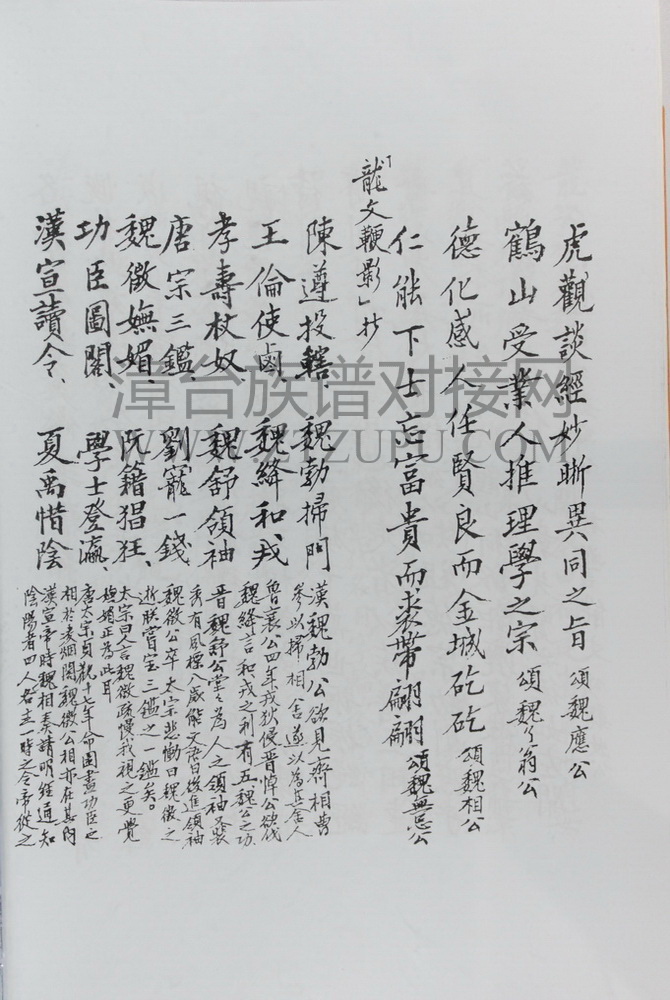 虎觀談經妙晰異同之旨 頌魏應公
鶴山受業人推理學之宗 頌魏了翁公
德化感人任賢良而金城矻矻 頌魏相公
仁能下士忘富貴而裘帶翩翩 頌魏無忌公
「龍文鞭影」抄
陳遵投轄、魏勃掃門 漢魏勃公欲見齊相曹
參以掃相舍遂以為其舍人
王倫使鹵、魏絳和戎 魯襄公四年戎狄侵晉悼公欲伐
魏絳言和戎之利有五魏公之功
孝壽杖奴、魏舒領袖 晉魏舒公堂堂為人之領袖又裴
秀有風標八歲能文語曰後進領袖
唐宗三鑑、劉寵一錢 魏徵公卒太宗悲慟曰魏徵之
逝朕嘗寶三鑑之一鑑矣。
魏徵嫵媚、阮籍猖狂、 太宗曰人言魏徵疏慢我視之更覺
嫵媚正為此耳
功臣圖閣、學士登瀛、 唐太宗貞觀十七年命圖畫功臣之
相於凌烟閣魏徵公相亦在其內
漢宣讀令、夏禹惜陰 漢宣帝時魏相奏請明經通知
陰陽者四人各主一時之令帝從之
漳台族谱对接网
WWW.ZTZUPU.COM